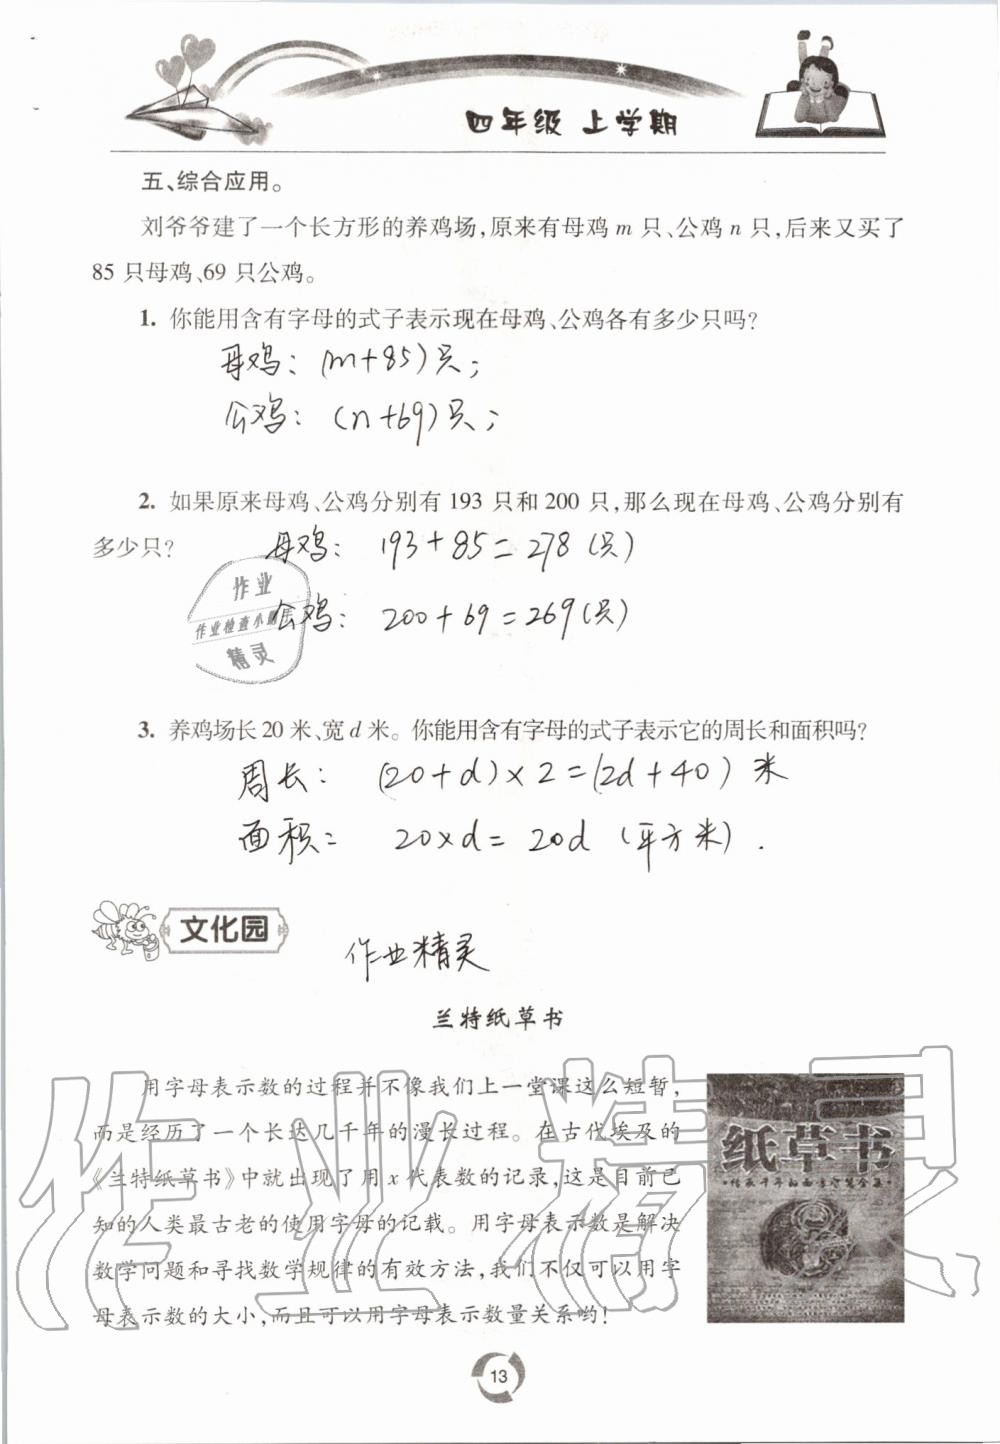 四年级 上学期
五、综合应用。
刘爷爷建了一个长方形的养鸡场,原来有母鸡 m 只、公鸡 n 只,后来又买了
85 只母鸡、69 只公鸡。
1. 你能用含有字母的式子表示现在母鸡、公鸡各有多少只吗?
母鸡: (m+85)只;
公鸡: (n+69)只;
2. 如果原来母鸡、公鸡分别有 193 只和 200 只,那么现在母鸡、公鸡分别有
多少只?
母鸡: 193+85=278(只)
作业
作业检查小助手
精灵
公鸡: 200+69=269(只)
3. 养鸡场长 20 米、宽 d 米。你能用含有字母的式子表示它的周长和面积吗?
周长: (20+d)×2=(2d+40) 米
面积: 20×d=20d (平方米).
文化园
作业精灵
兰特纸草书
用字母表示数的过程并不像我们上一堂课这么短暂,
而是经历了一个长达几千年的漫长过程。在古代埃及的
《兰特纸草书》中就出现了用 x 代表数的记录,这是目前已
知的人类最古老的使用字母的记载。用字母表示数是解决
数学问题和寻找数学规律的有效方法,我们不仅可以用字
母表示数的大小,而且可以用字母表示数量关系哟!
纸草书
作业精灵
13